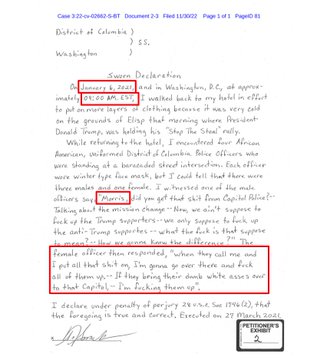 Case 3:22-cv-02662-S-BT Document 2-3 Filed 11/30/22 Page 1 of 1 PageID 81
District of Columbia )
) SS.
Washington )
Sworn Declaration
On January 6, 2021, and in Washington, D.C., at approx-
imately 09:00 AM. EST, I walked back to my hotel in effort
to put on more layers of clothing because it was very cold
on the grounds of Elisp that morning where President
Donald Trump was holding his "Stop The Steal" rally.
While returning to the hotel, I encountered four African
American, uniformed District of Columbia Police Officers who
were standing at a baracaded street intersection. Each officer
wore winter type face mask, but I could tell that there were
three males and one female. I witnessed one of the male
officers say, "Morris, did you get that shit from Capitol Police?--
Talking about the mission change -- Now, we ain't suppose to
fuck up the Trump supporters -- we only suppose to fuck up
the anti-Trump supporters -- what the fuck is that suppose
to mean?-- How we gonna know the difference?" The
female officer then responded, "when they call me and
I put all that shit on, I'm gonna go over there and fuck
all of them up. -- If they bring their dumb white asses over
to that Capitol, -- I'm fucking them up".
I declare under penalty of perjury 28 U.S.C. Sec 1746(2), that
the foregoing is true and correct. Executed on 29 March 2021
PETITIONER'S
EXHIBIT
2